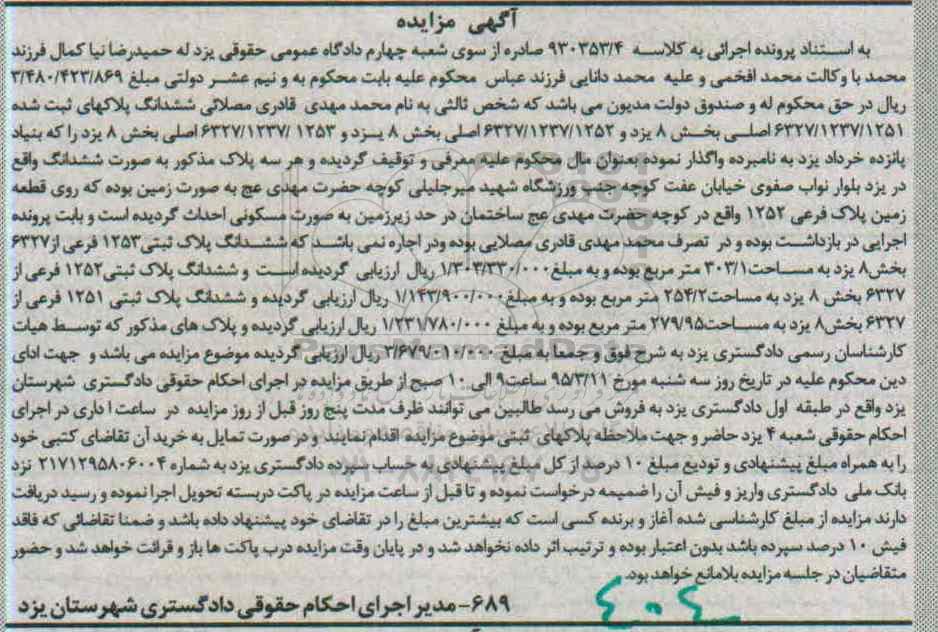 آگهی مزایده
به استناد پرونده اجرائی به کلاسه ۹۳۰۳۵۳/۴ صادره از سوی شعبه چهارم دادگاه عمومی حقوقی یزد له حمیدرضا نبا کمال فرزند
محمد با وکالت محمد افخمی و علیه محمد دانایی فرزند عباس محکوم علیه بابت محکوم به و نیم عشر دولتی مبلغ ۳/۴۸۰/۴۲۳/۸۶۹
ریال در حق محکوم له و صندوق دولت مدیون می باشد که شخص ثالثی به نام محمد مهدی قادری مصلائی ششدانگ پلاکهای ثبت شده
۶۳۲۷/۱۲۳۷/۱۲۵۱ اصلی بخش ۸ یزد و ۶۳۲۷/۱۲۳۷/۱۲۵۲ اصلی بخش ۸ یزد و ۱۲۵۳ /۶۳۲۷/۱۲۳۷ اصلی بخش ۸ یزد را که بنیاد
پانزده خرداد یزد به نامبرده واگذار نموده بعنوان مال محکوم علیه معرفی و توقیف گردیده و هر سه پلاک مذکور به صورت ششدانگ واقع
در یزد بلوار نواب صفوی خیابان عفت کوچه جنب ورزشگاه شهید میرجلیلی کوچه حضرت مهدی عج به صورت زمین بوده که روی قطعه
زمین پلاک فرعی ۱۲۵۲ واقع در کوچه حضرت مهدی عج ساختمان در حد زیرزمین به صورت مسکونی احداث گردیده است و بابت پرونده
اجرایی در بازداشت بوده و در تصرف محمد مهدی قادری مصلایی بوده ودر اجاره نمی باشد که ششدانگ پلاک ثبتی۱۲۵۳ فرعی از۶۳۲۷
بخش۸ یزد به مساحت۳۰۳/۱ متر مربع بوده و به مبلغ۱/۳۰۳/۳۳۰/۰۰۰ ریال ارزیابی گردیده است و ششدانگ پلاک ثبتی۱۲۵۲ فرعی از
۶۳۲۷ بخش ۸ یزد به مساحت۲۵۴/۲ متر مربع بوده و به مبلغ۱/۱۴۳/۹۰۰/۰۰۰ ریال ارزیابی گردیده و ششدانگ پلاک ثبتی ۱۲۵۱ فرعی از
۶۳۲۷ بخش۸ یزد به مساحت۲۷۹/۹۵ متر مربع بوده و به مبلغ ۱/۲۳۱/۷۸۰/۰۰۰ ریال ارزیابی گردیده و پلاک های مذکور که توسط هیات
کارشناسان رسمی دادگستری یزد به شرح فوق و جمعا به مبلغ ۳/۶۷۹/۰۱۰/۰۰۰ ریال ارزیابی گردیده موضوع مزایده می باشد و جهت ادای
دین محکوم علیه در تاریخ روز سه شنبه مورخ ۹۵/۳/۱۱ ساعت۹ الی ۱۰ صبح از طریق مزایده در اجرای احکام حقوقی دادگستری شهرستان
یزد واقع در طبقه اول دادگستری یزد به فروش می رسد طالبین می توانند ظرف مدت پنج روز قبل از روز مزایده در ساعت اداری در اجرای
احکام حقوقی شعبه ۴ یزد حاضر و جهت ملاحظه پلاکهای ثبتی موضوع مزایده اقدام نمایند و در صورت تمایل به خرید آن تقاضای کتبی خود
را به همراه مبلغ پیشنهادی و تودیع مبلغ ۱۰ درصد از کل مبلغ پیشنهادی به حساب سپرده دادگستری یزد به شماره ۲۱۷۱۲۹۵۸۰۶۰۰۴ نزد
بانک ملی دادگستری واریز و فیش آن را ضمیمه درخواست نموده و تا قبل از ساعت مزایده در پاکت دربسته تحویل اجرا نموده و رسید دریافت
دارند مزایده از مبلغ کارشناسی شده آغاز و برنده کسی است که بیشترین مبلغ را در تقاضای خود پیشنهاد داده باشد و ضمنا تقاضائی که فاقد
فیش ۱۰ درصد سپرده باشد بدون اعتبار بوده و ترتیب اثر داده نخواهد شد و در پایان وقت مزایده درب پاکت ها باز و قرائت خواهد شد و حضور
متقاضیان در جلسه مزایده بلامانع خواهد بود.
۶۸۹-مدیر اجرای احکام حقوقی دادگستری شهرستان یزد
ParsNamadData